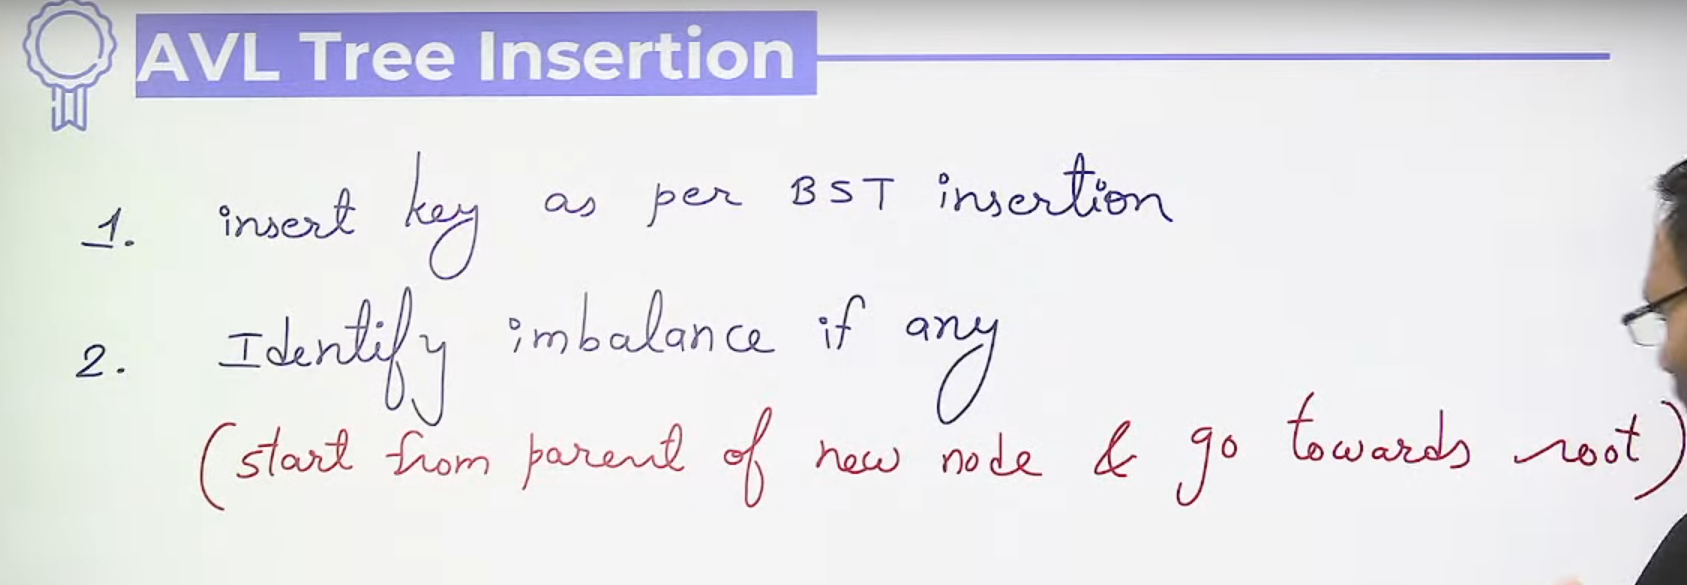 AVL Tree Insertion
1. insert key as per BST insertion
2. Identify imbalance if any
(start from parent of new node & go towards root)